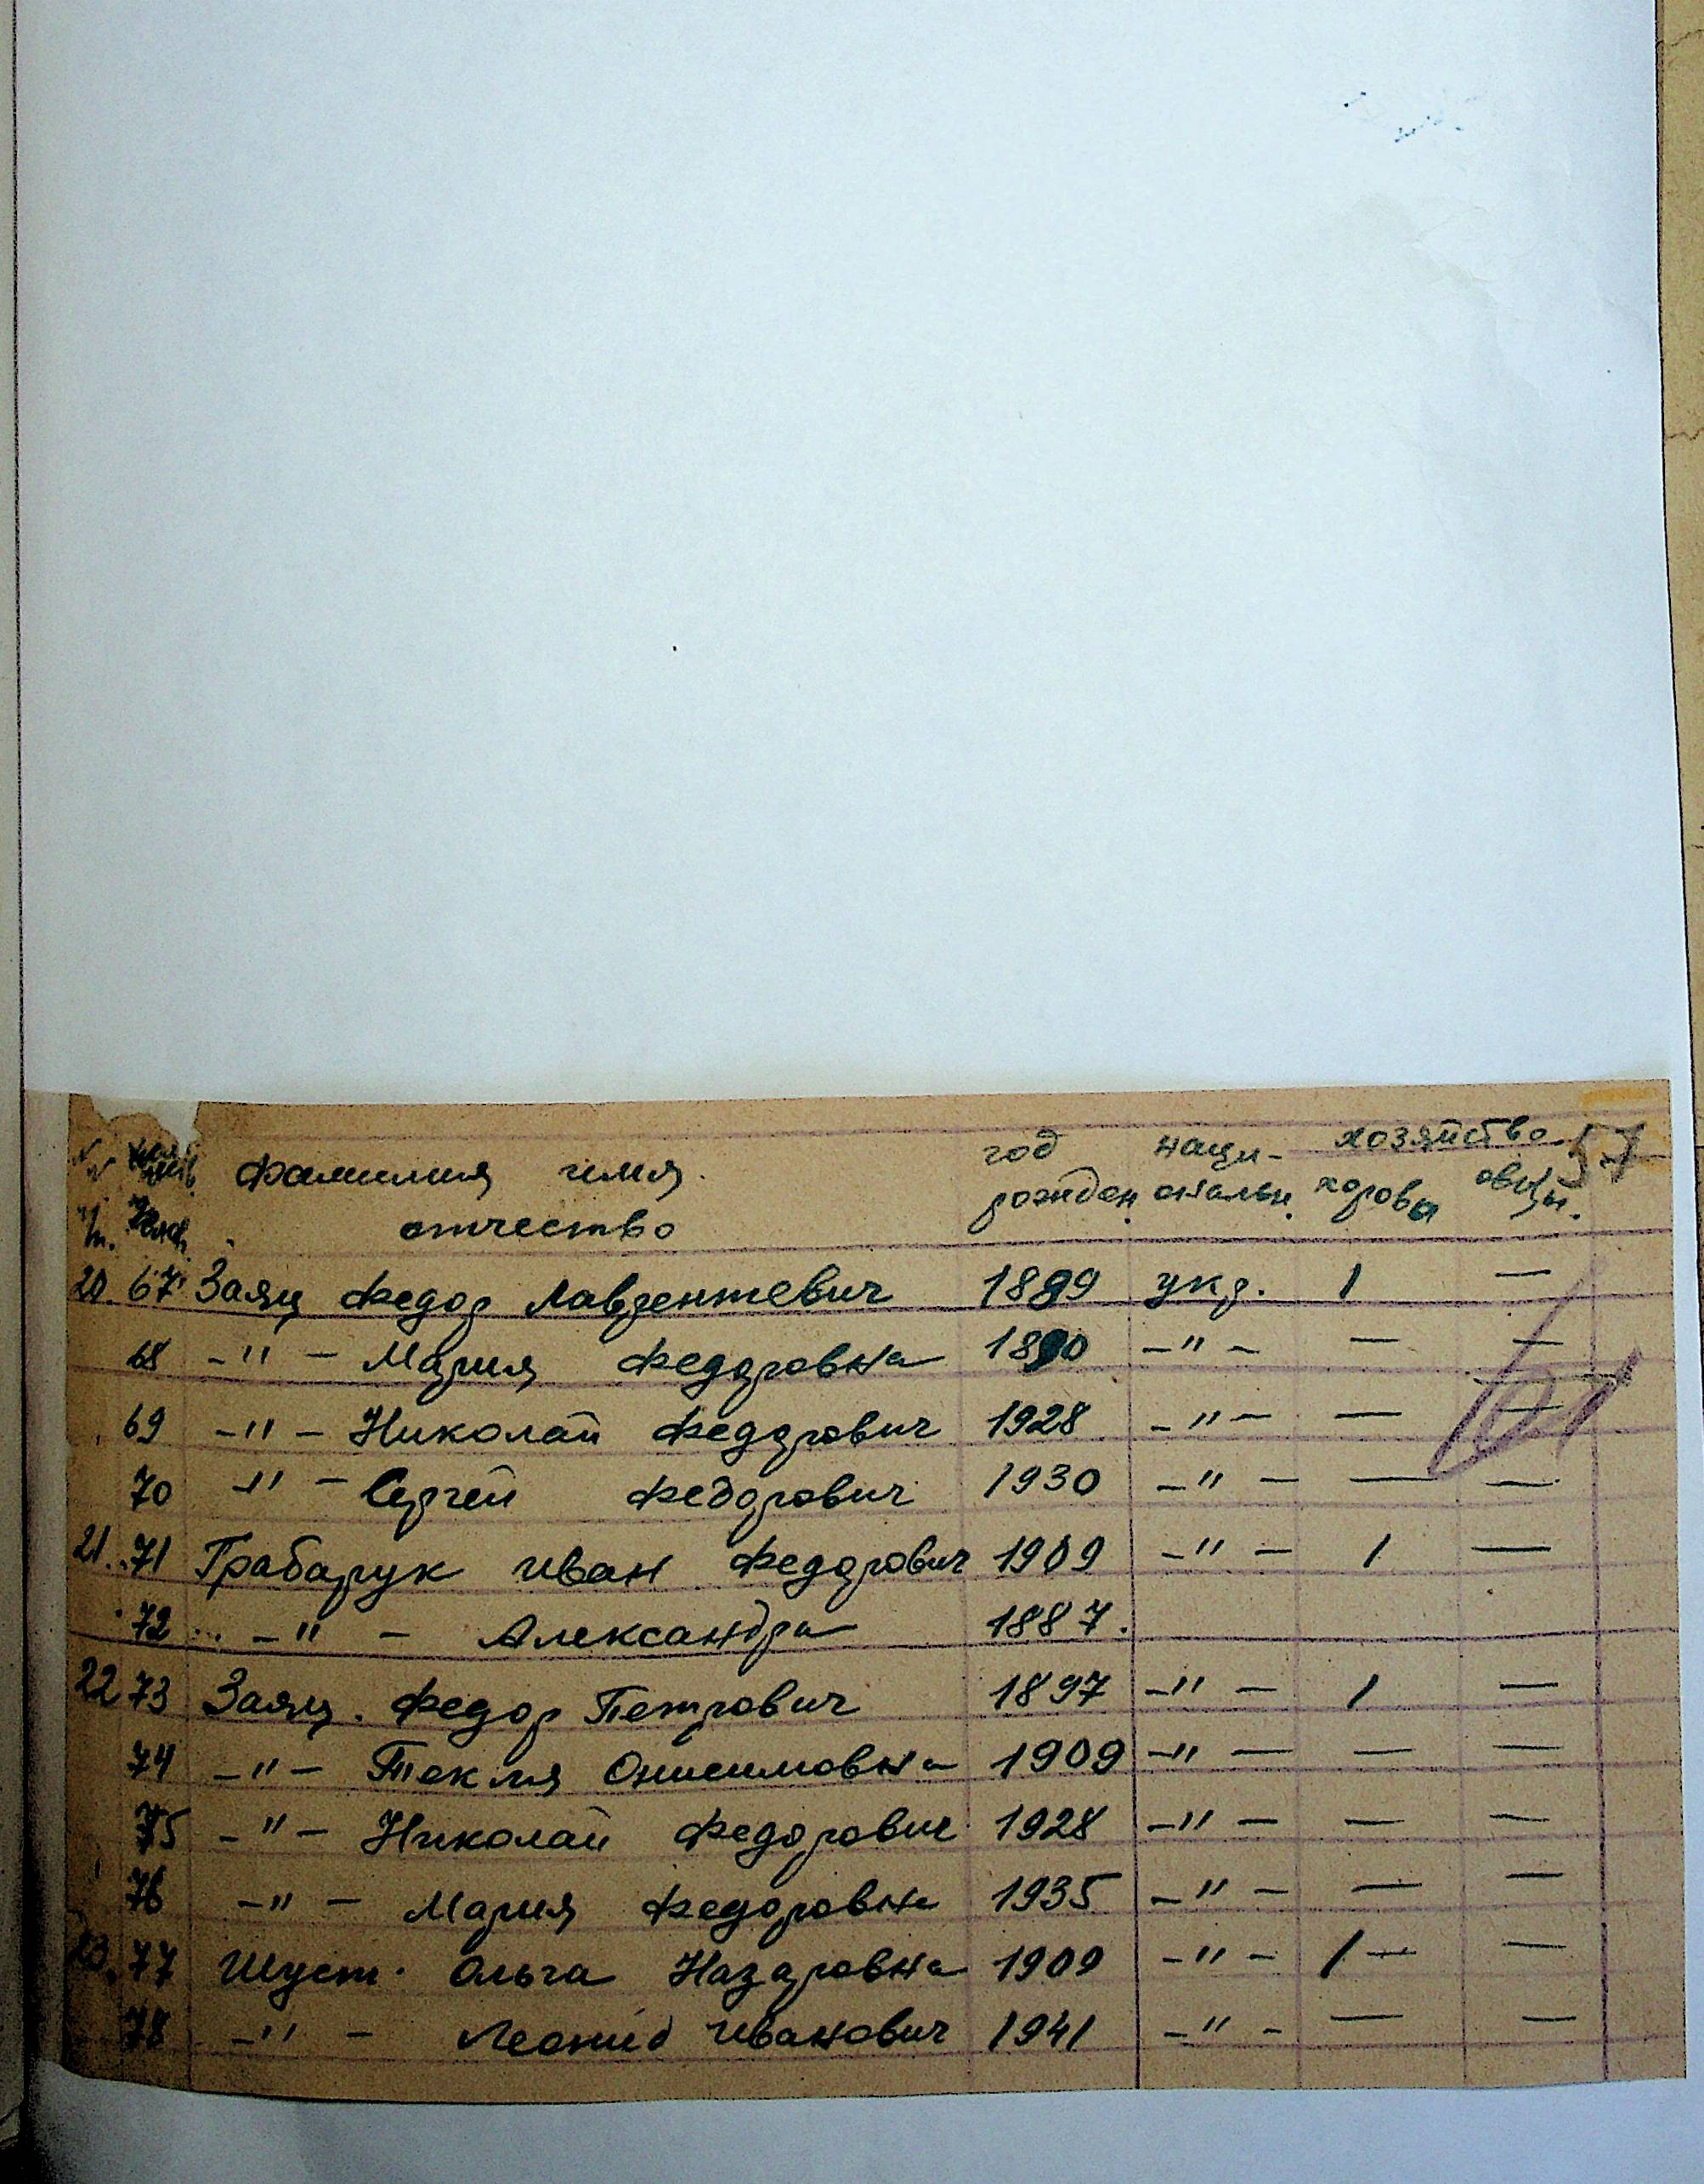 фамилия имя отчество год рожден. наци-ональн. хозяйство коровы овцы. 57
20. 67 Заяц Федор Лаврентевич 1889 укр. 1 —
68 -"- Мария Федоровна 1890 -"- — —
69 -"- Николай Федорович 1928 -"- — —
70 -"- Сергей Федорович 1930 -"- — —
21. 71 Грабарук Иван Федорович 1909 -"- 1 —
72 -"- Александра 1887.
22 73 Заяц. Федор Петрович 1897 -"- 1 —
74 -"- Текля Онисимовна 1909 -"- — —
75 -"- Николай Федорович 1928 -"- — —
76 -"- Мария Федоровна 1935 -"- — —
23. 77 Шуст. Ольга Назаровна 1909 -"- 1 — —
78 -"- Леонид Иванович 1941 -"- — —